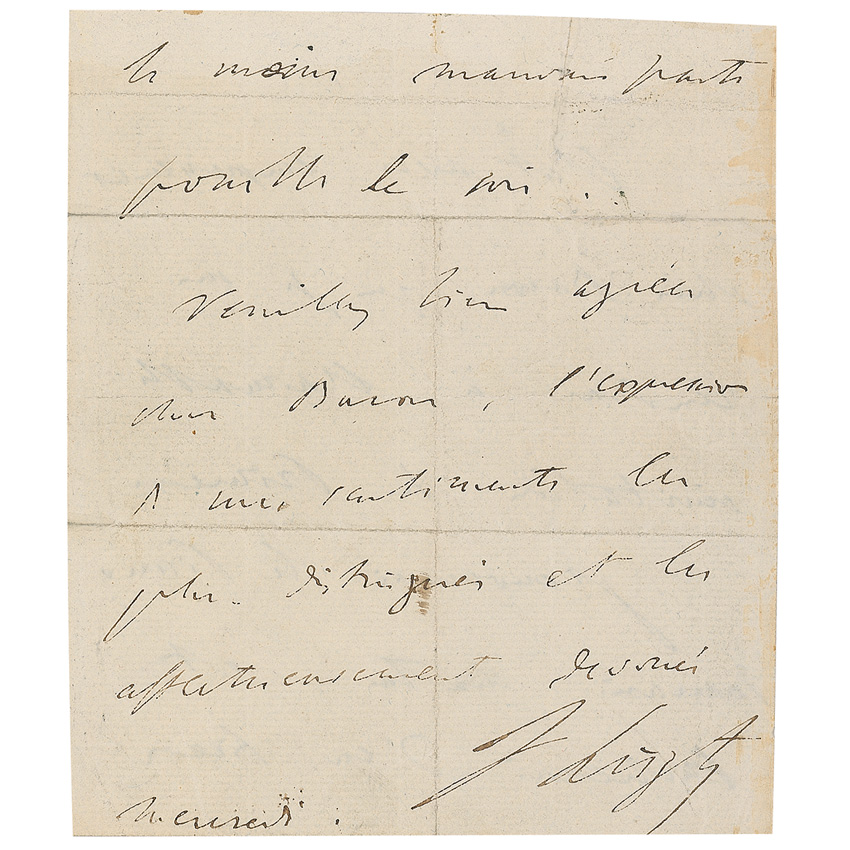 le moins mauvais parti
possible ce soir.
Veuillez bien agréer
cher Baron, l'expression
de mes sentiments les
plus distingués et les
affectueusement dévoués
F Liszt
Mercredi.